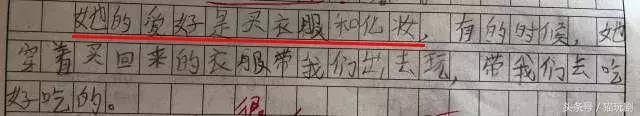 她的爱好是买衣服和化妆，有的时候，她
穿着买回来的衣服带我们出去玩，带我们去吃
好吃的。
很
头条号／猫玩剧